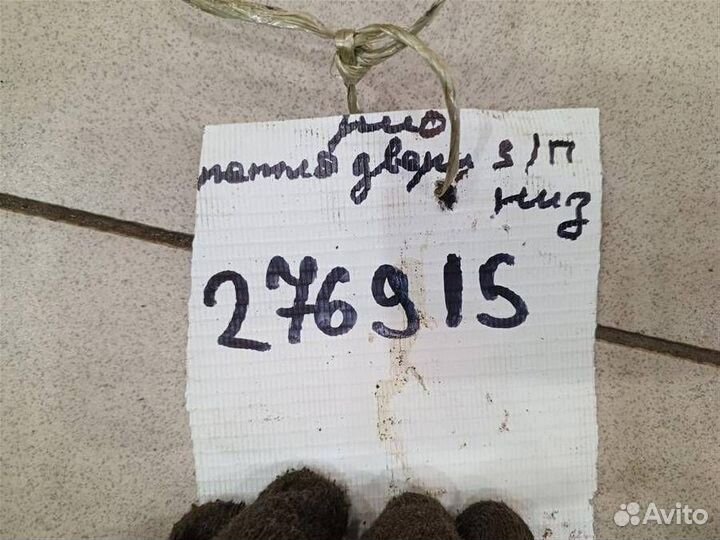 петля двери з/п
низ
276915
Avito